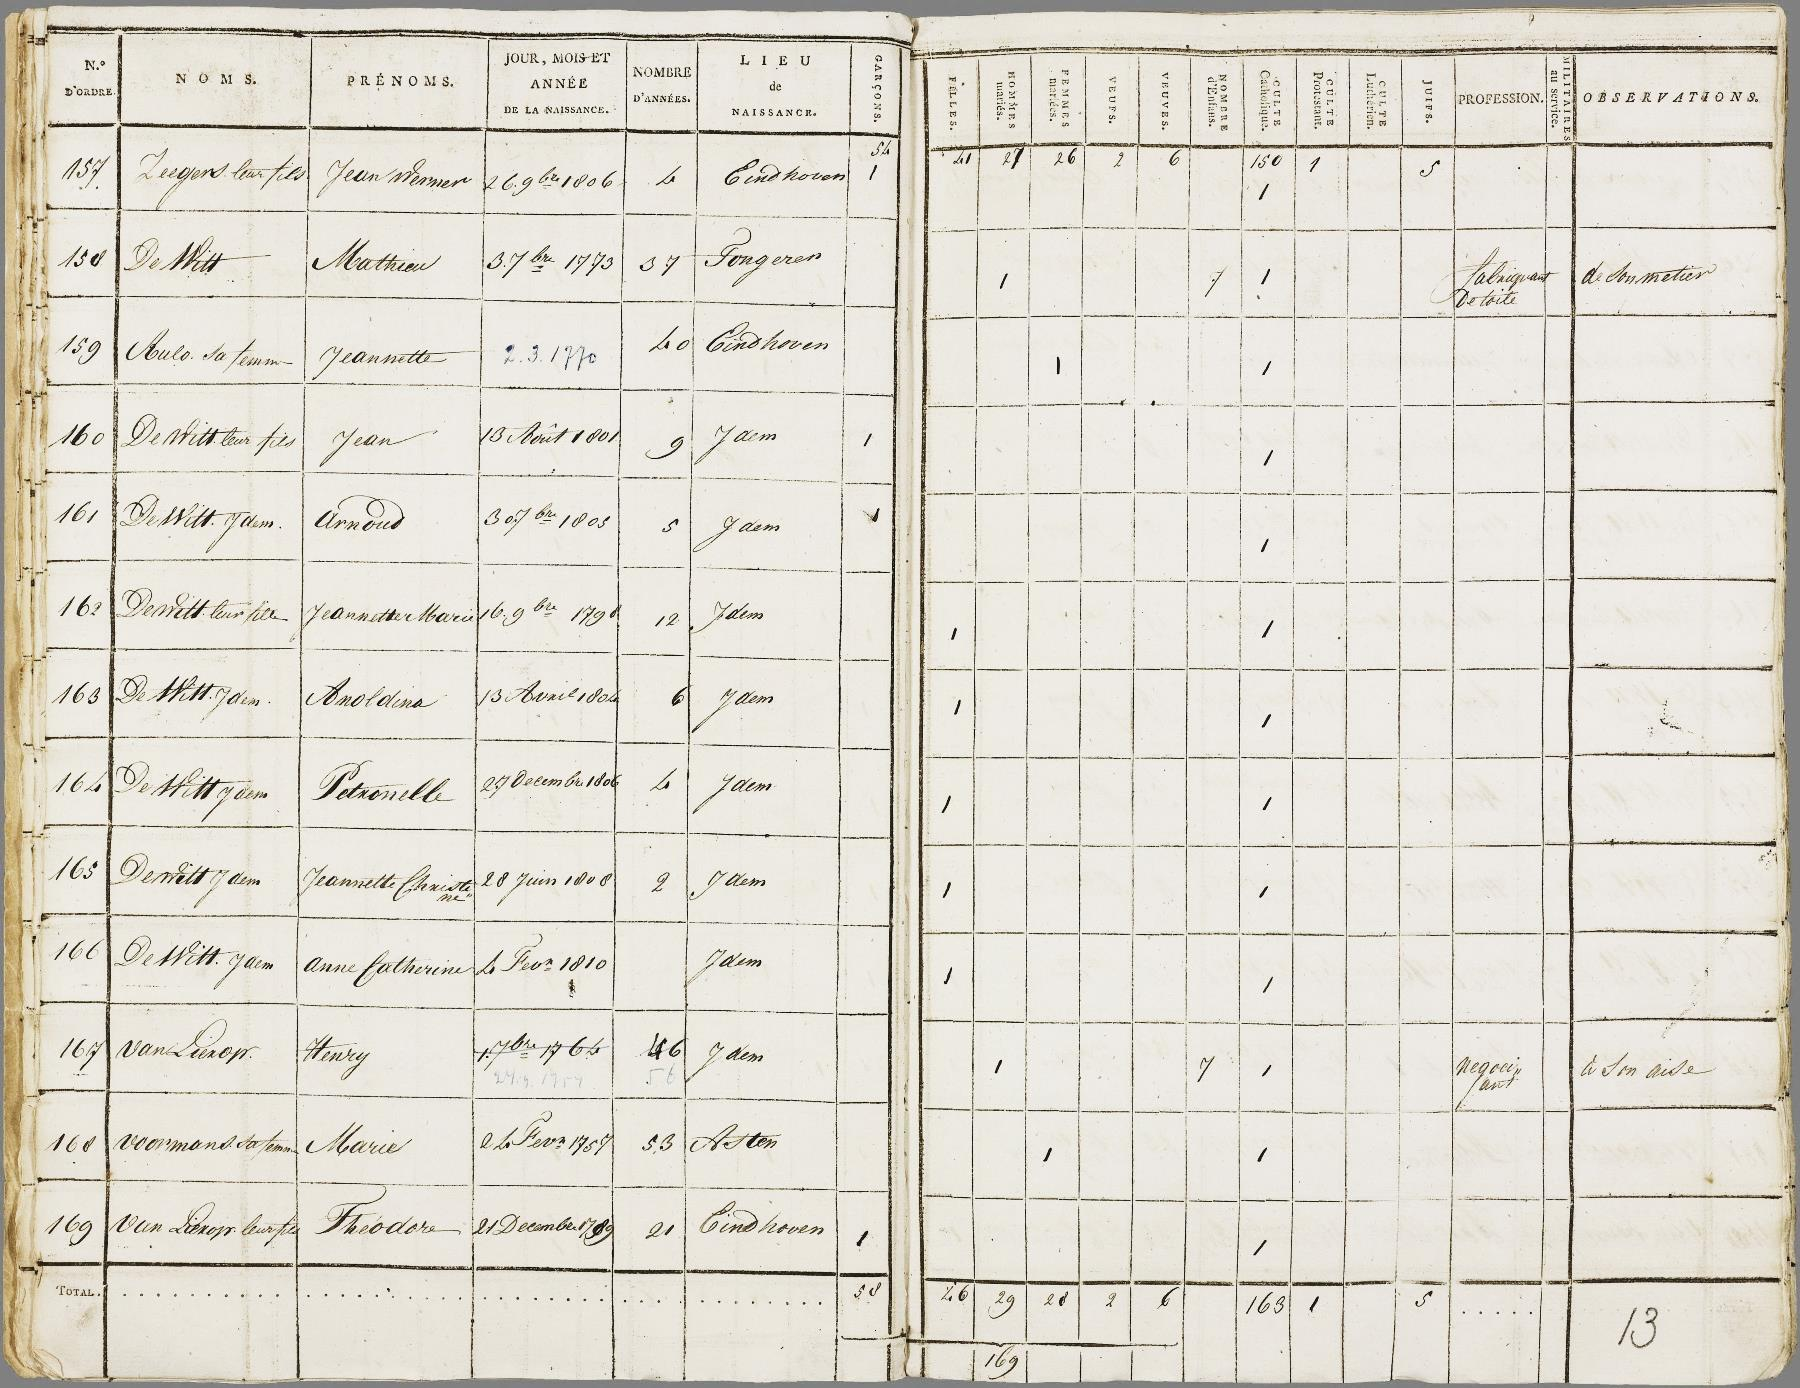 N.º D'ORDRE. NOMS. PRÉNOMS. JOUR, MOIS ET ANNÉE DE LA NAISSANCE. NOMBRE D'ANNÉES. LIEU de NAISSANCE. GARÇONS. FILLES. HOMMES mariés. FEMMES mariées. VEUFS. VEUVES. NOMBRE d'Enfans. CULTE Catholique. CULTE Protestant. CULTE Luthérien. JUIFS. PROFESSION. MILITAIRES au service. OBSERVATIONS.
54 41 27 26 2 6 150 1 5
157 Zeegers leur fils Jean Werner 26. 9bre 1806 4 Eindhoven 1 1
158 De Witt Mathieu 3. 7bre 1773 37 Tongeren 1 7 1 fabriquant de toile de son metier
159 Aulo. sa femm Jeannette 2.3.1770 40 Eindhoven 1 1
160 De Witt leur fils Jean 13 Août 1801 9 Jdem 1 1
161 De Witt. Jdem. Arnoud 30 7bre 1805 5 Jdem 1 1
162 De Witt. leur fille Jeannette Marie 16. 9bre 1798 12 Jdem 1 1
163 De Witt. Jdem. Anoldina 13 Avril 1804 6 Jdem 1 1
164 De Witt Jdem Petronelle 27 Decembre 1806 4 Jdem 1 1
165 De Witt Jdem Jeannette Christine 28 Juin 1808 2 Jdem 1 1
166 De Witt. Jdem Anne Catherine 4 Fevr 1810 Jdem 1 1
167 Van Lierop. Henry 1. 7bre 1764 46 Jdem 1 7 1 negociant à son aise
56
168 Voormans. sa femm Marie 24 Fevr 1757 53 Asten 1 1
169 Van Lierop. leur fils Théodore 21 Decembre 1789 21 Eindhoven 1 1
TOTAL. 58 46 29 28 2 6 163 1 5
169
13